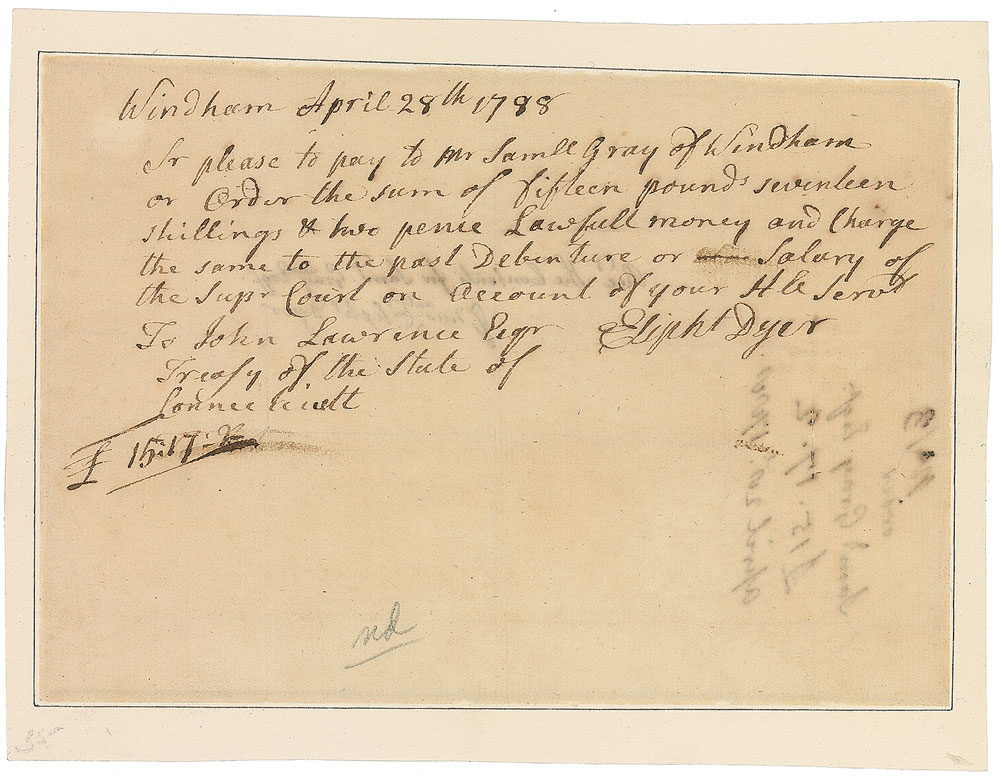 Windham April 28th 1788
Sr please to pay to Mr Samll Gray of Windham
or Order the sum of fifteen pounds seventeen
shillings & two pence Lawfull money and Charge
the same to the past Debenture or Salary of
the Supr Court on Account of your Hle Servt
To John Lawrence Esqr Elipht Dyer
Treasy of the State of
Connecticutt
£ 15:17:2